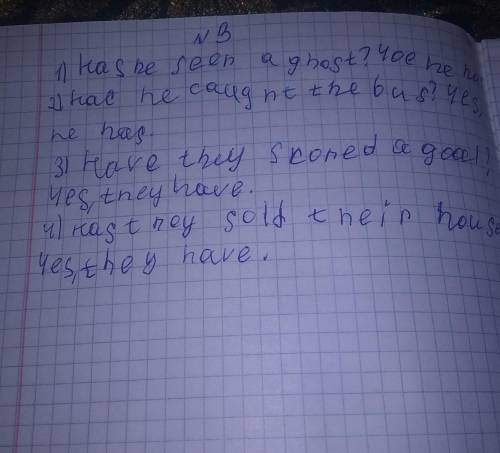 N3
1) Has he seen a ghost? Yoe he ha
2) Hac he caught the bus? Yes,
he has.
3) Have they skoned a goal?
Yes, they have.
4) Hast hey sold their house
Yes, they have.